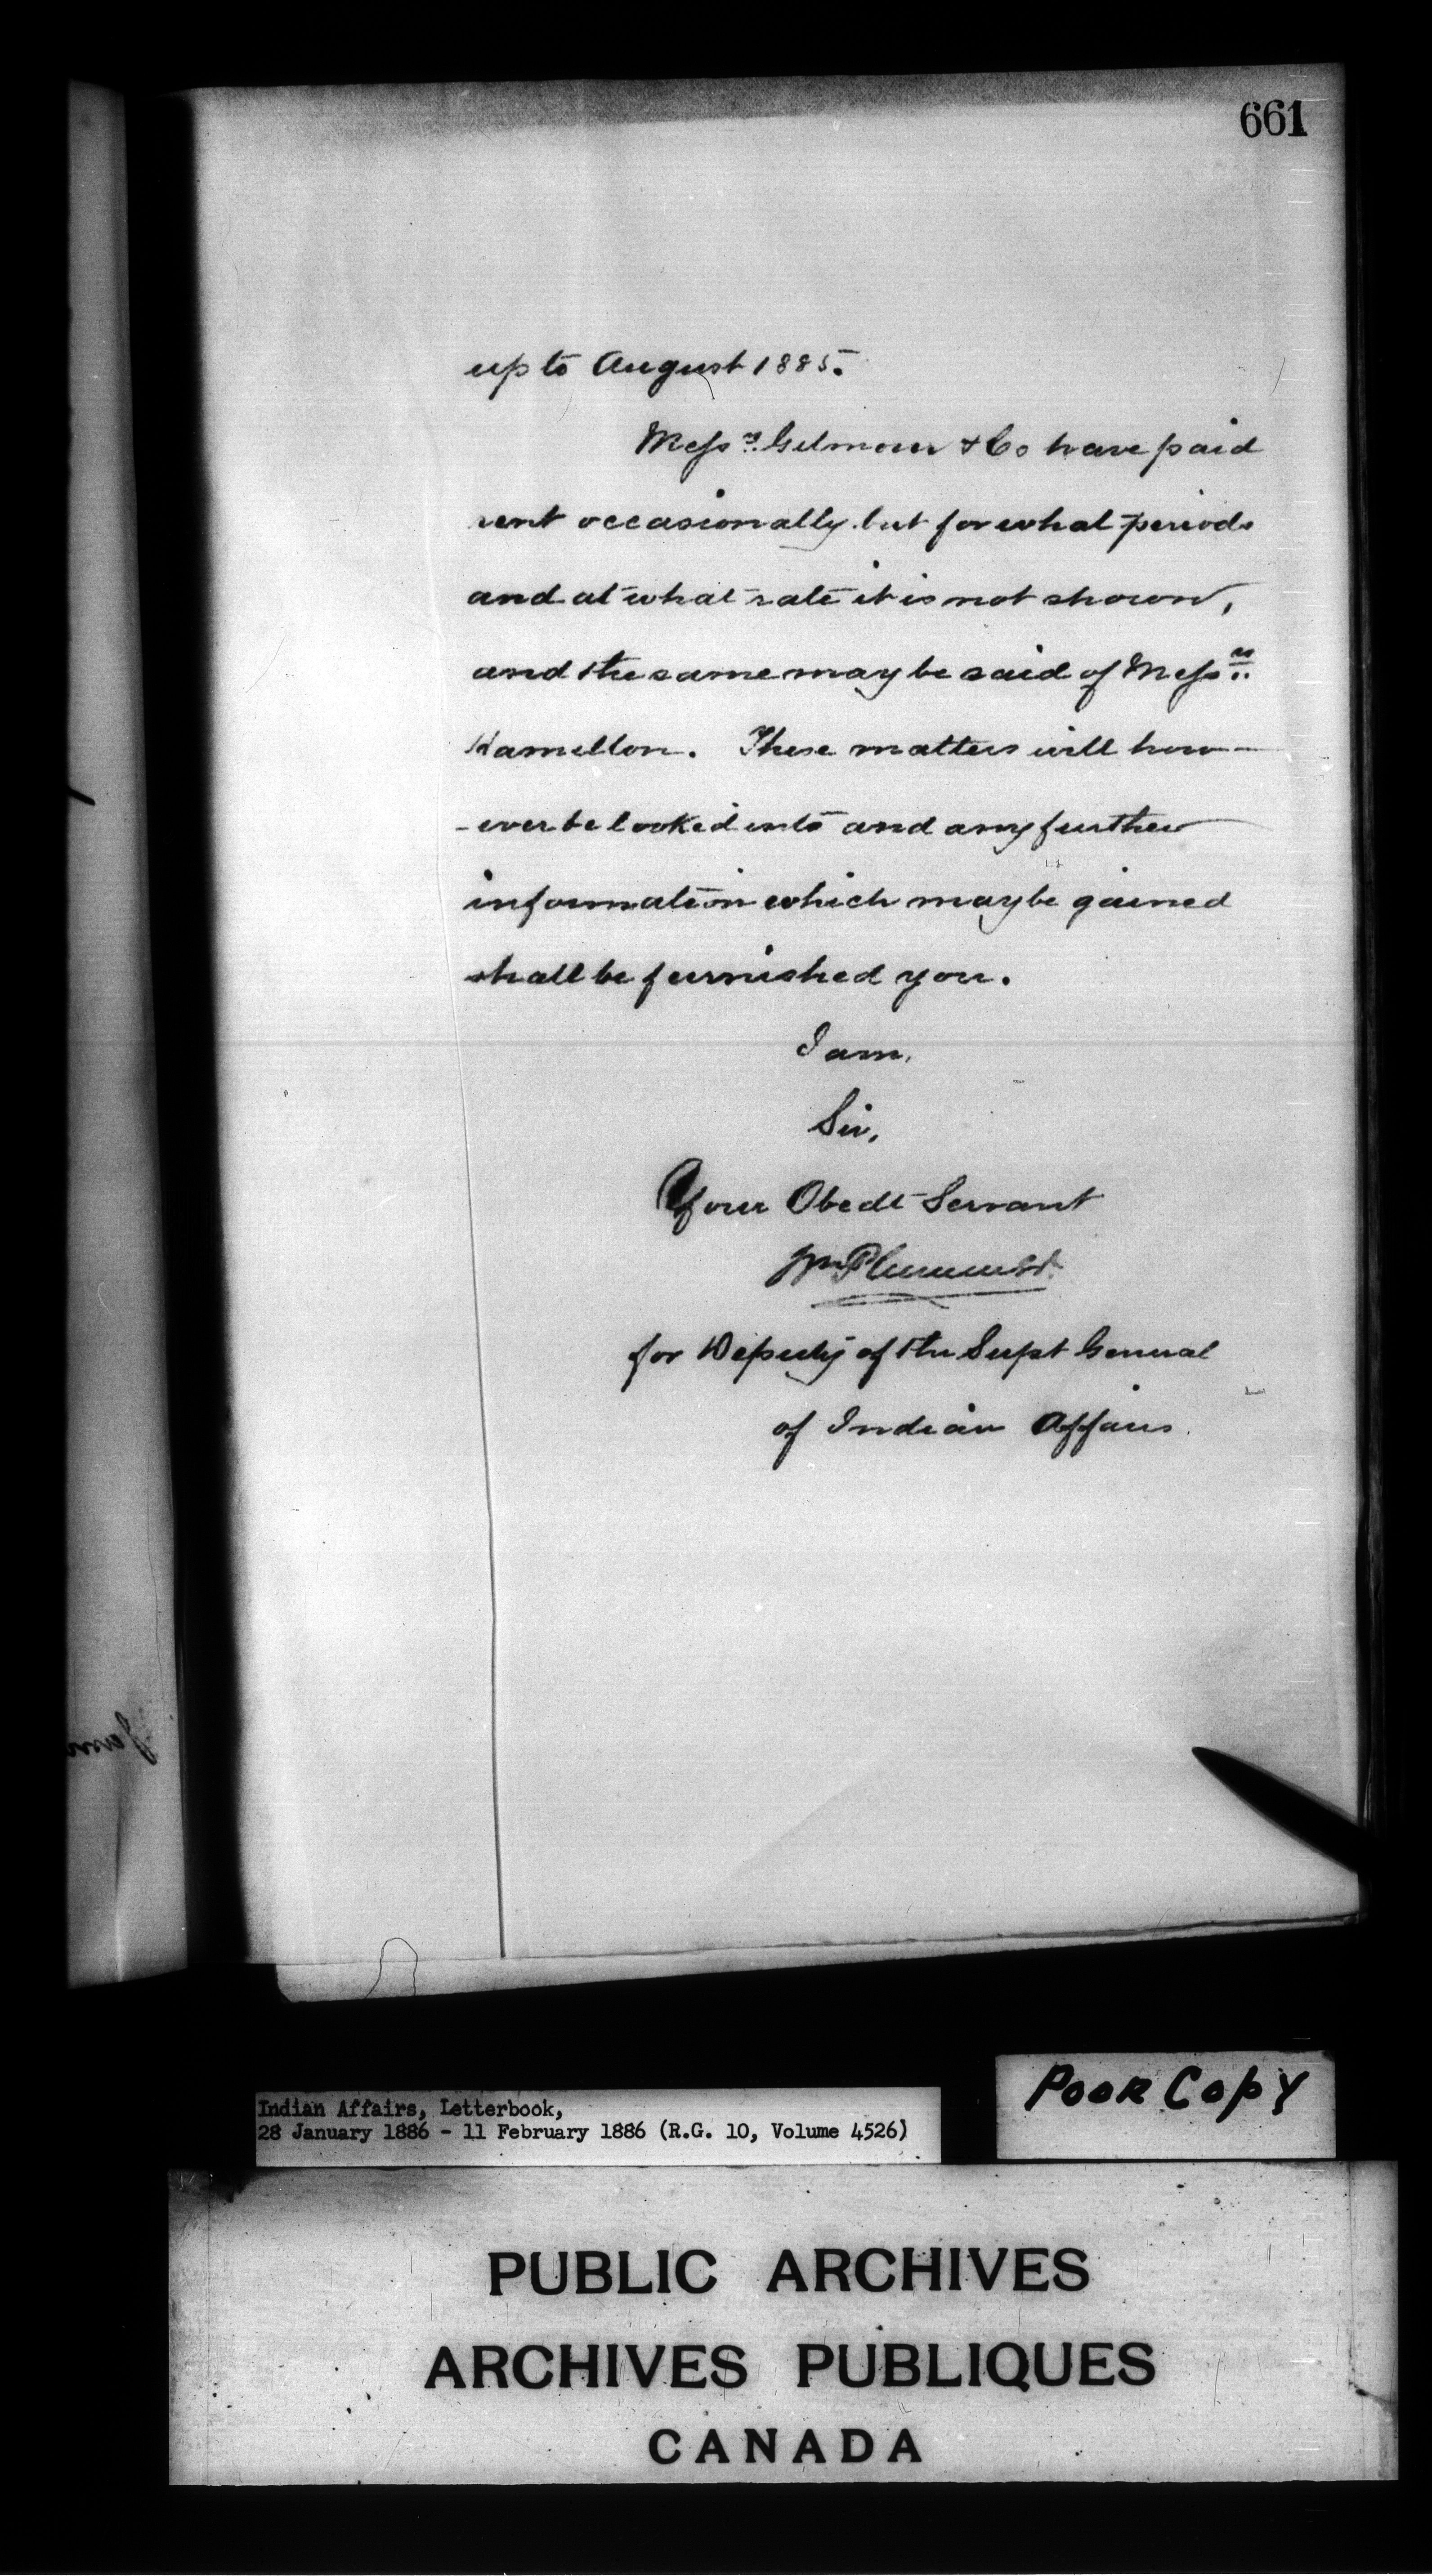 661
up to August 1885.
Messrs. Gilmour & Co have paid
rent occasionally but for what periods
and at what rate it is not shown,
and the same may be said of Messrs.
Hamilton. These matters will how-
-ever be looked into and any further
information which may be gained
shall be furnished you.
I am,
Sir,
Your Obedt Servant
Wm Plummer
for Deputy of the Supt General
of Indian Affairs.
Indian Affairs, Letterbook,
28 January 1886 - 11 February 1886 (R.G. 10, Volume 4526)
Poor Copy
PUBLIC ARCHIVES
ARCHIVES PUBLIQUES
CANADA